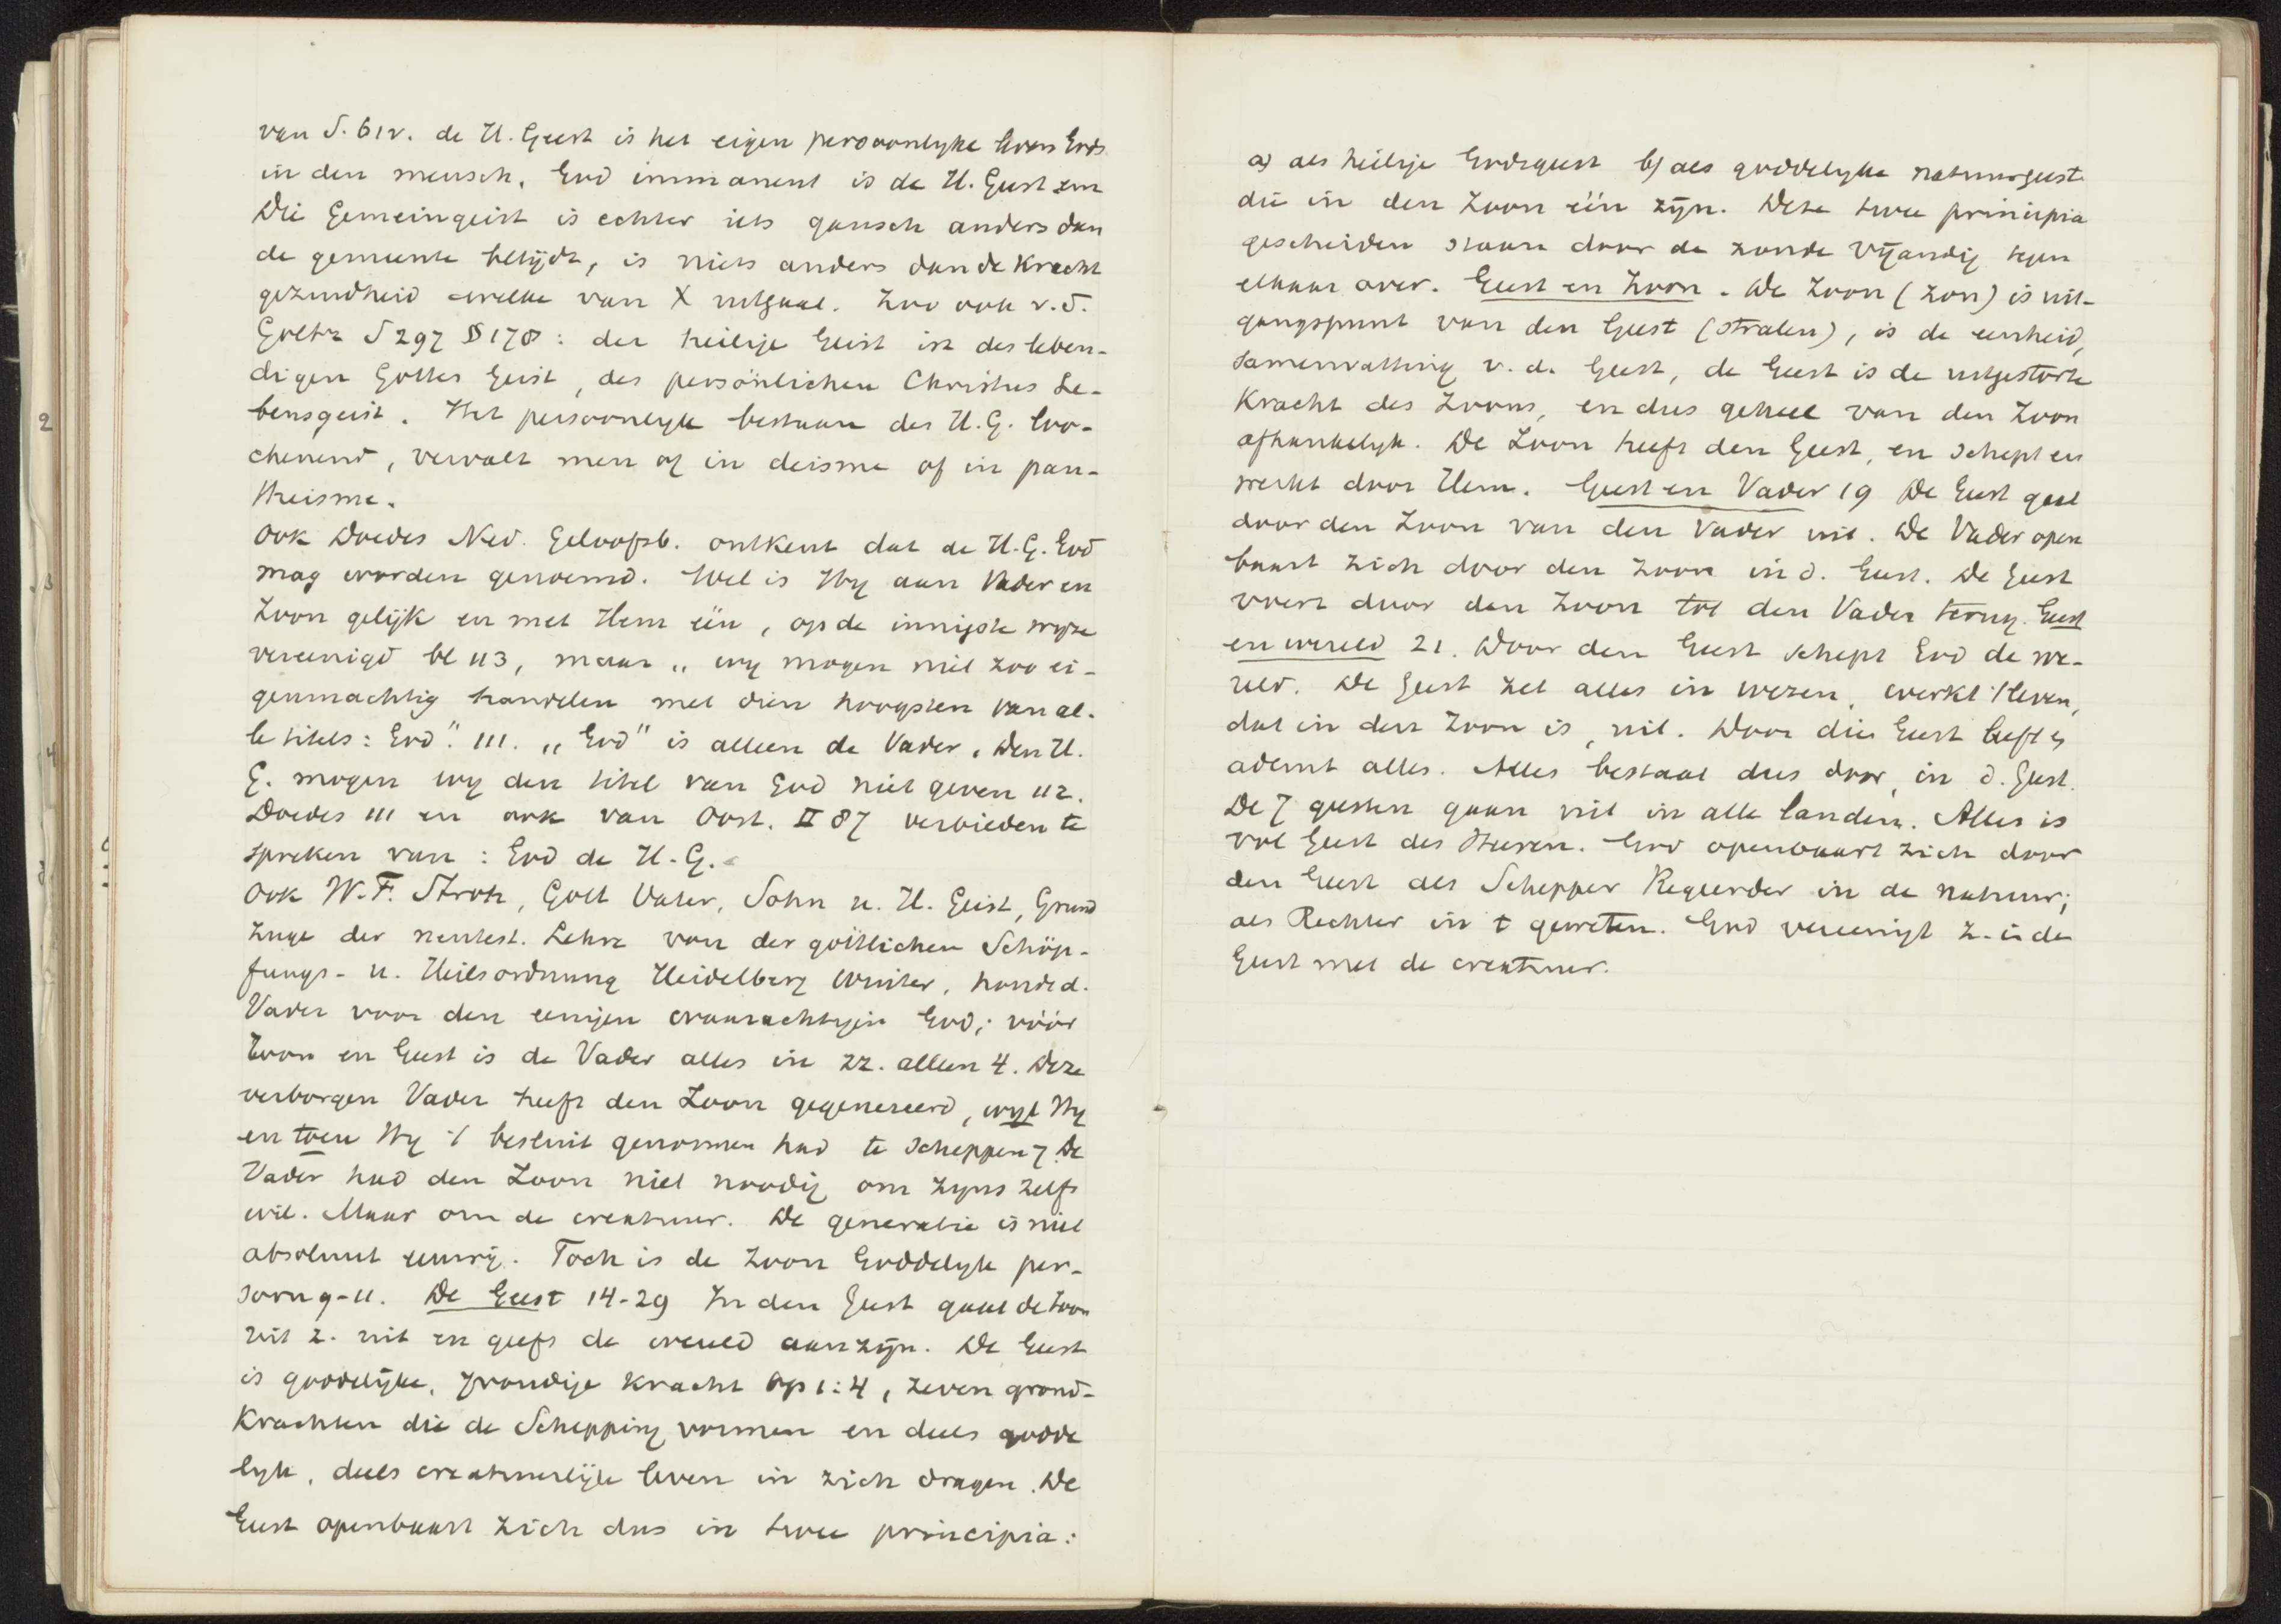 van S. 612. de H. Geest is het eigen persoonlyke leven Gods
in den mensch. God immanent is de H. Geest zen
Die Gemeingeist is echter iets gansch anders dan
de gemeente belijdt, is niets anders dan de Kracht
gezindheid welke van X uitgaat. Zoo ook v. d.
Goltz S 297 § 178: der heilige Geist ist des leben-
digen Gottes Geist, des persönlichen Christus Le-
bensgeist. Het persoonlyk bestaan des H. G. loo-
chenend, vervalt men of in deisme of in pan-
theisme.
Ook Doedes Ned. Geloofsb. ontkent dat de H. G. God
mag worden genoemd. Wel is Hy aan Vader en
Zoon gelijk en met Hem één, op de innigste wyze
vereenigd bl 113, maar „ wy mogen niet zoo ei-
genmachtig handelen met dien hoogsten van al-
le titels: God". 111. „God" is alleen de Vader. Den H.
G. mogen wy den titel van God niet geven 112.
Doedes 111 en ook van Oost. II 87 verbieden te
spreken van: God de H. G.
Ook W. F. Stroh, Gott Vater, Sohn u. H. Geist, Grund
züge der neutest. Lehre von der göttlichen Schöp-
fungs- u. Heilsordnung Heidelberg Winter, houdt d.
Vader voor den eenigen waarachtigen God; vóór
Zoon en Geest is de Vader alles in zz. alleen 4. Deze
verborgen Vader heeft den Zoon gegenereerd, wyl Hy
en toen Hy 't besluit genomen had te scheppen 7 De
Vader had den Zoon niet noodig om zyns zelfs
wil. Maar om de creatuur. De generatie is niet
absoluut eeuwig. Toch is de Zoon Goddelyk per-
soon 9-11. De Geest 14-29 In den Geest gaat de Zoon
uit z. uit en geeft de wereld aanzijn. De Geest
is goddelijke, 7voudige kracht Op 1:4, zeven grond-
Krachten die de Schepping vormen en deels godde
lyk, deels creatuurlijk leven in zich dragen. De
Geest openbaart zich dus in twee principia:
a) als heilige Godsgeest b) als goddelyke natuurgeest
die in den Zoon één zijn. Deze twee principia
gescheiden staan door de zonde vijandig tegen
elkaar over. Geest en Zoon. De Zoon (Zon) is uit-
gangspunt van den Geest (stralen), is de eenheid,
samenvatting v. d. Geest, de Geest is de uitgestorte
Kracht des Zoons, en dus geheel van den Zoon
afhankelyk. De Zoon heeft den Geest, en schept en
werkt door Hem. Geest en Vader 19 De Geest gaat
door den Zoon van den Vader uit. De Vader open
baart zich door den Zoon in d. Geest. De Geest
voert door den Zoon tot den Vader terug. Geest
en wereld 21. Door den Geest schept God de we-
reld. De Geest zet alles in wezen, werkt 't leven,
dat in den Zoon is, uit. Door die Geest leeft en
ademt alles. Alles bestaat dus door, in d. Geest.
De 7 geesten gaan uit in alle landen. Alles is
vol Geest des Heeren. God openbaart zich door
den Geest als Schepper Regeerder in de natuur;
als Rechter in t geweten. God vereenigt z. in den
Geest met de creatuur.